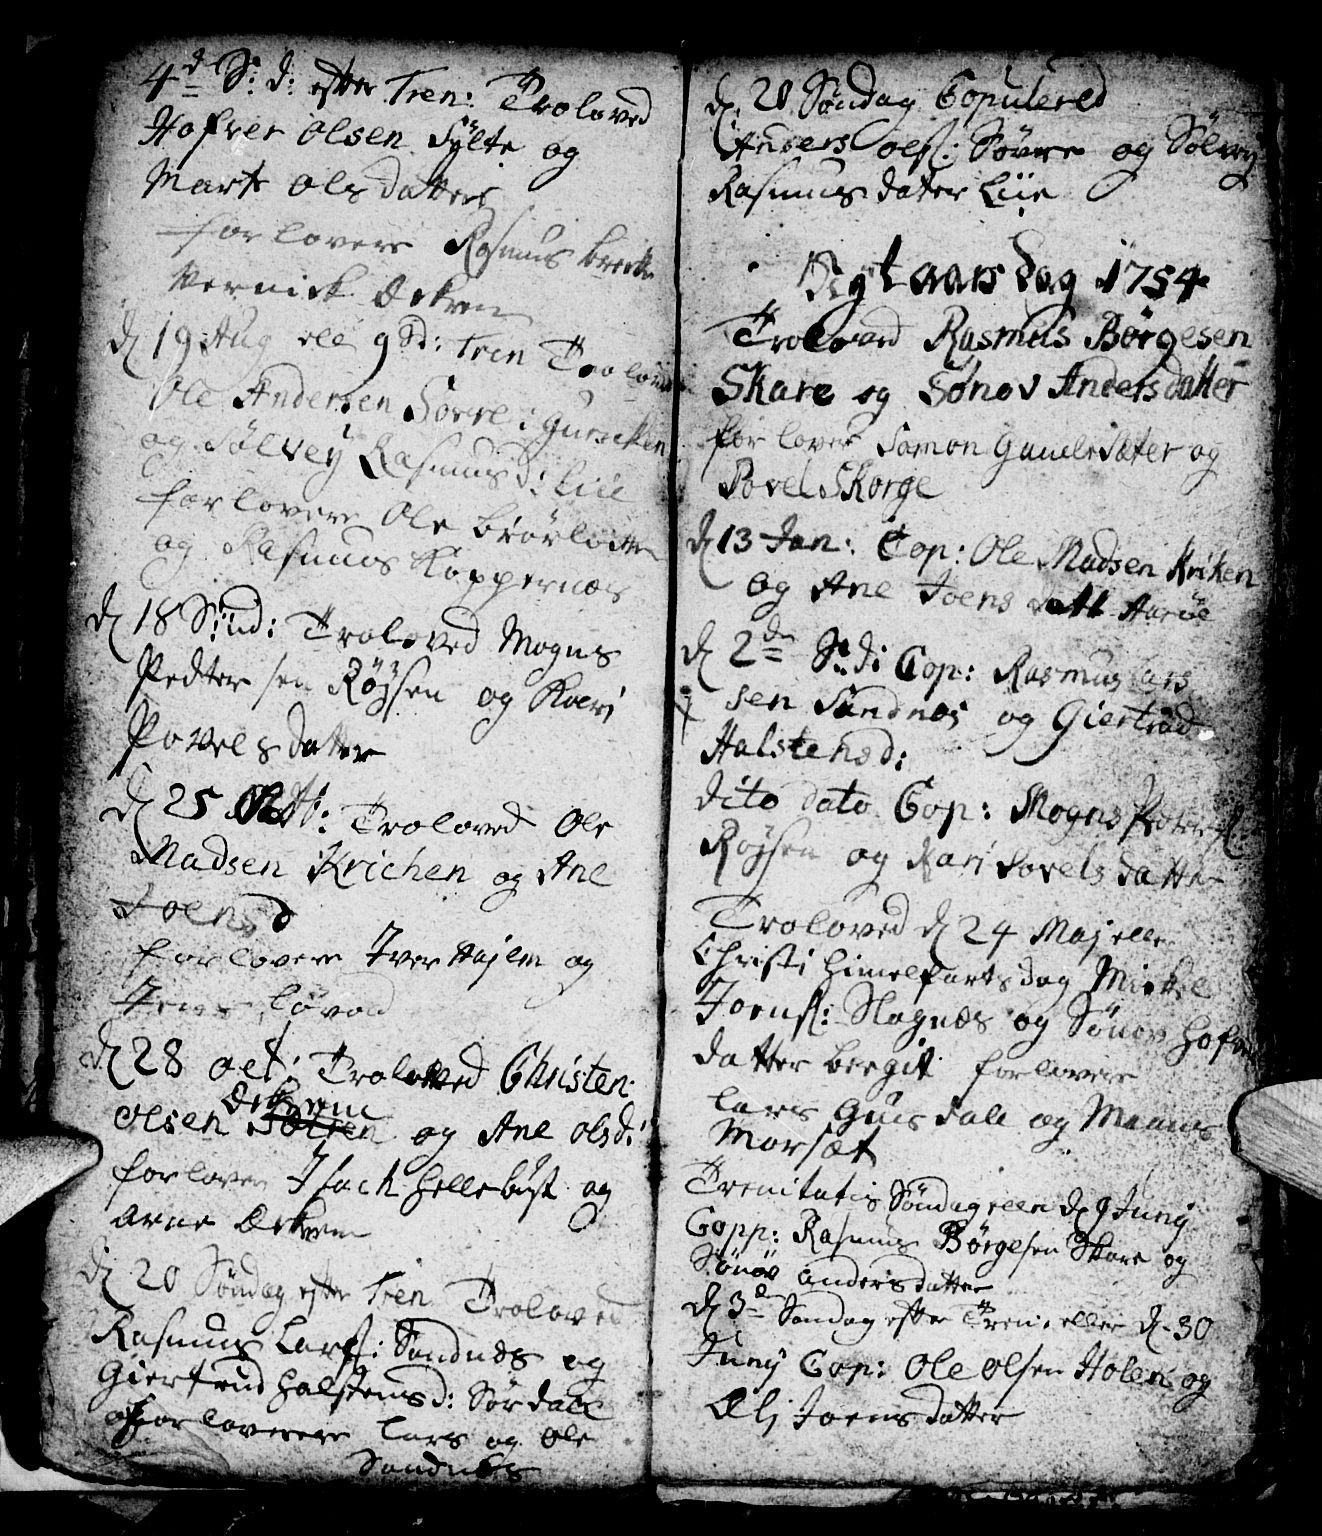 4d S: d: efter Tren: Troloved
Hofver Olsen Sylte og
Marte Ols datter
forlovere Rasmus
Vernick Ørken
d 19 Aug elle 9 Sd: Tren Troloved
Ole Andersen Sovre i
og Sølvey Rasmus d: Liie
forlovere Ole
og Rasmus Koppernæs
d 18 Sønd: Troloved Mogns
Pedter sen Røjsen og Kari
Povels datter
d 25 Troloved Ole
Madsen Krichen og Ane
Joensd
forlovere Iver Hajem og
Jens Løvod
d 28 oct: Troloved Christen
Ørkenn
Olsen og Ane Olsd:
forlover Isach Hellebust og
Arne Ørken
d 20 Søndag efter Tren Troloved
Rasmus Lars: Sandnæs og
Giertrud Halstensd: Sørdale
forlovere Lars og Ole
Sandnæs
d. 20 Søndag Copulered
Anders ols: Søvre og Sølvey
Rasmus datter Liie
Nyt aars Dag 1754
Troloved Rasmus Børgesen
Skare og Sønov Anders datter
forlover Samon Gamlesæter og
Povel Skorge
d 13 Jan: Cop: Ole Madsen Kriken
og Ane Joens datt Aarøe
d 2de S: d: Cop: Rasmus Lars
sen Sandnes og Giertrud
Halstensd:
dito dato Cop: Mogns
Røjsen og Kari Povels datter
Troloved d 24 Maj elle
Christi Himelfarts dag Mickel
Joens: Slagnæs og Sønov Hofver
datter bergit forlovere
Lars Gusdale og Maans
Morsæt
Trenitatis Søndag elen d 9 Juny
Copp: Rasmus Børgesen Skare og
Sønov Andersdatter
d 3de Søndag efter Tren: eller d. 30
Juny Cop: Ole Olsen Holen og
Æli Joensdatter